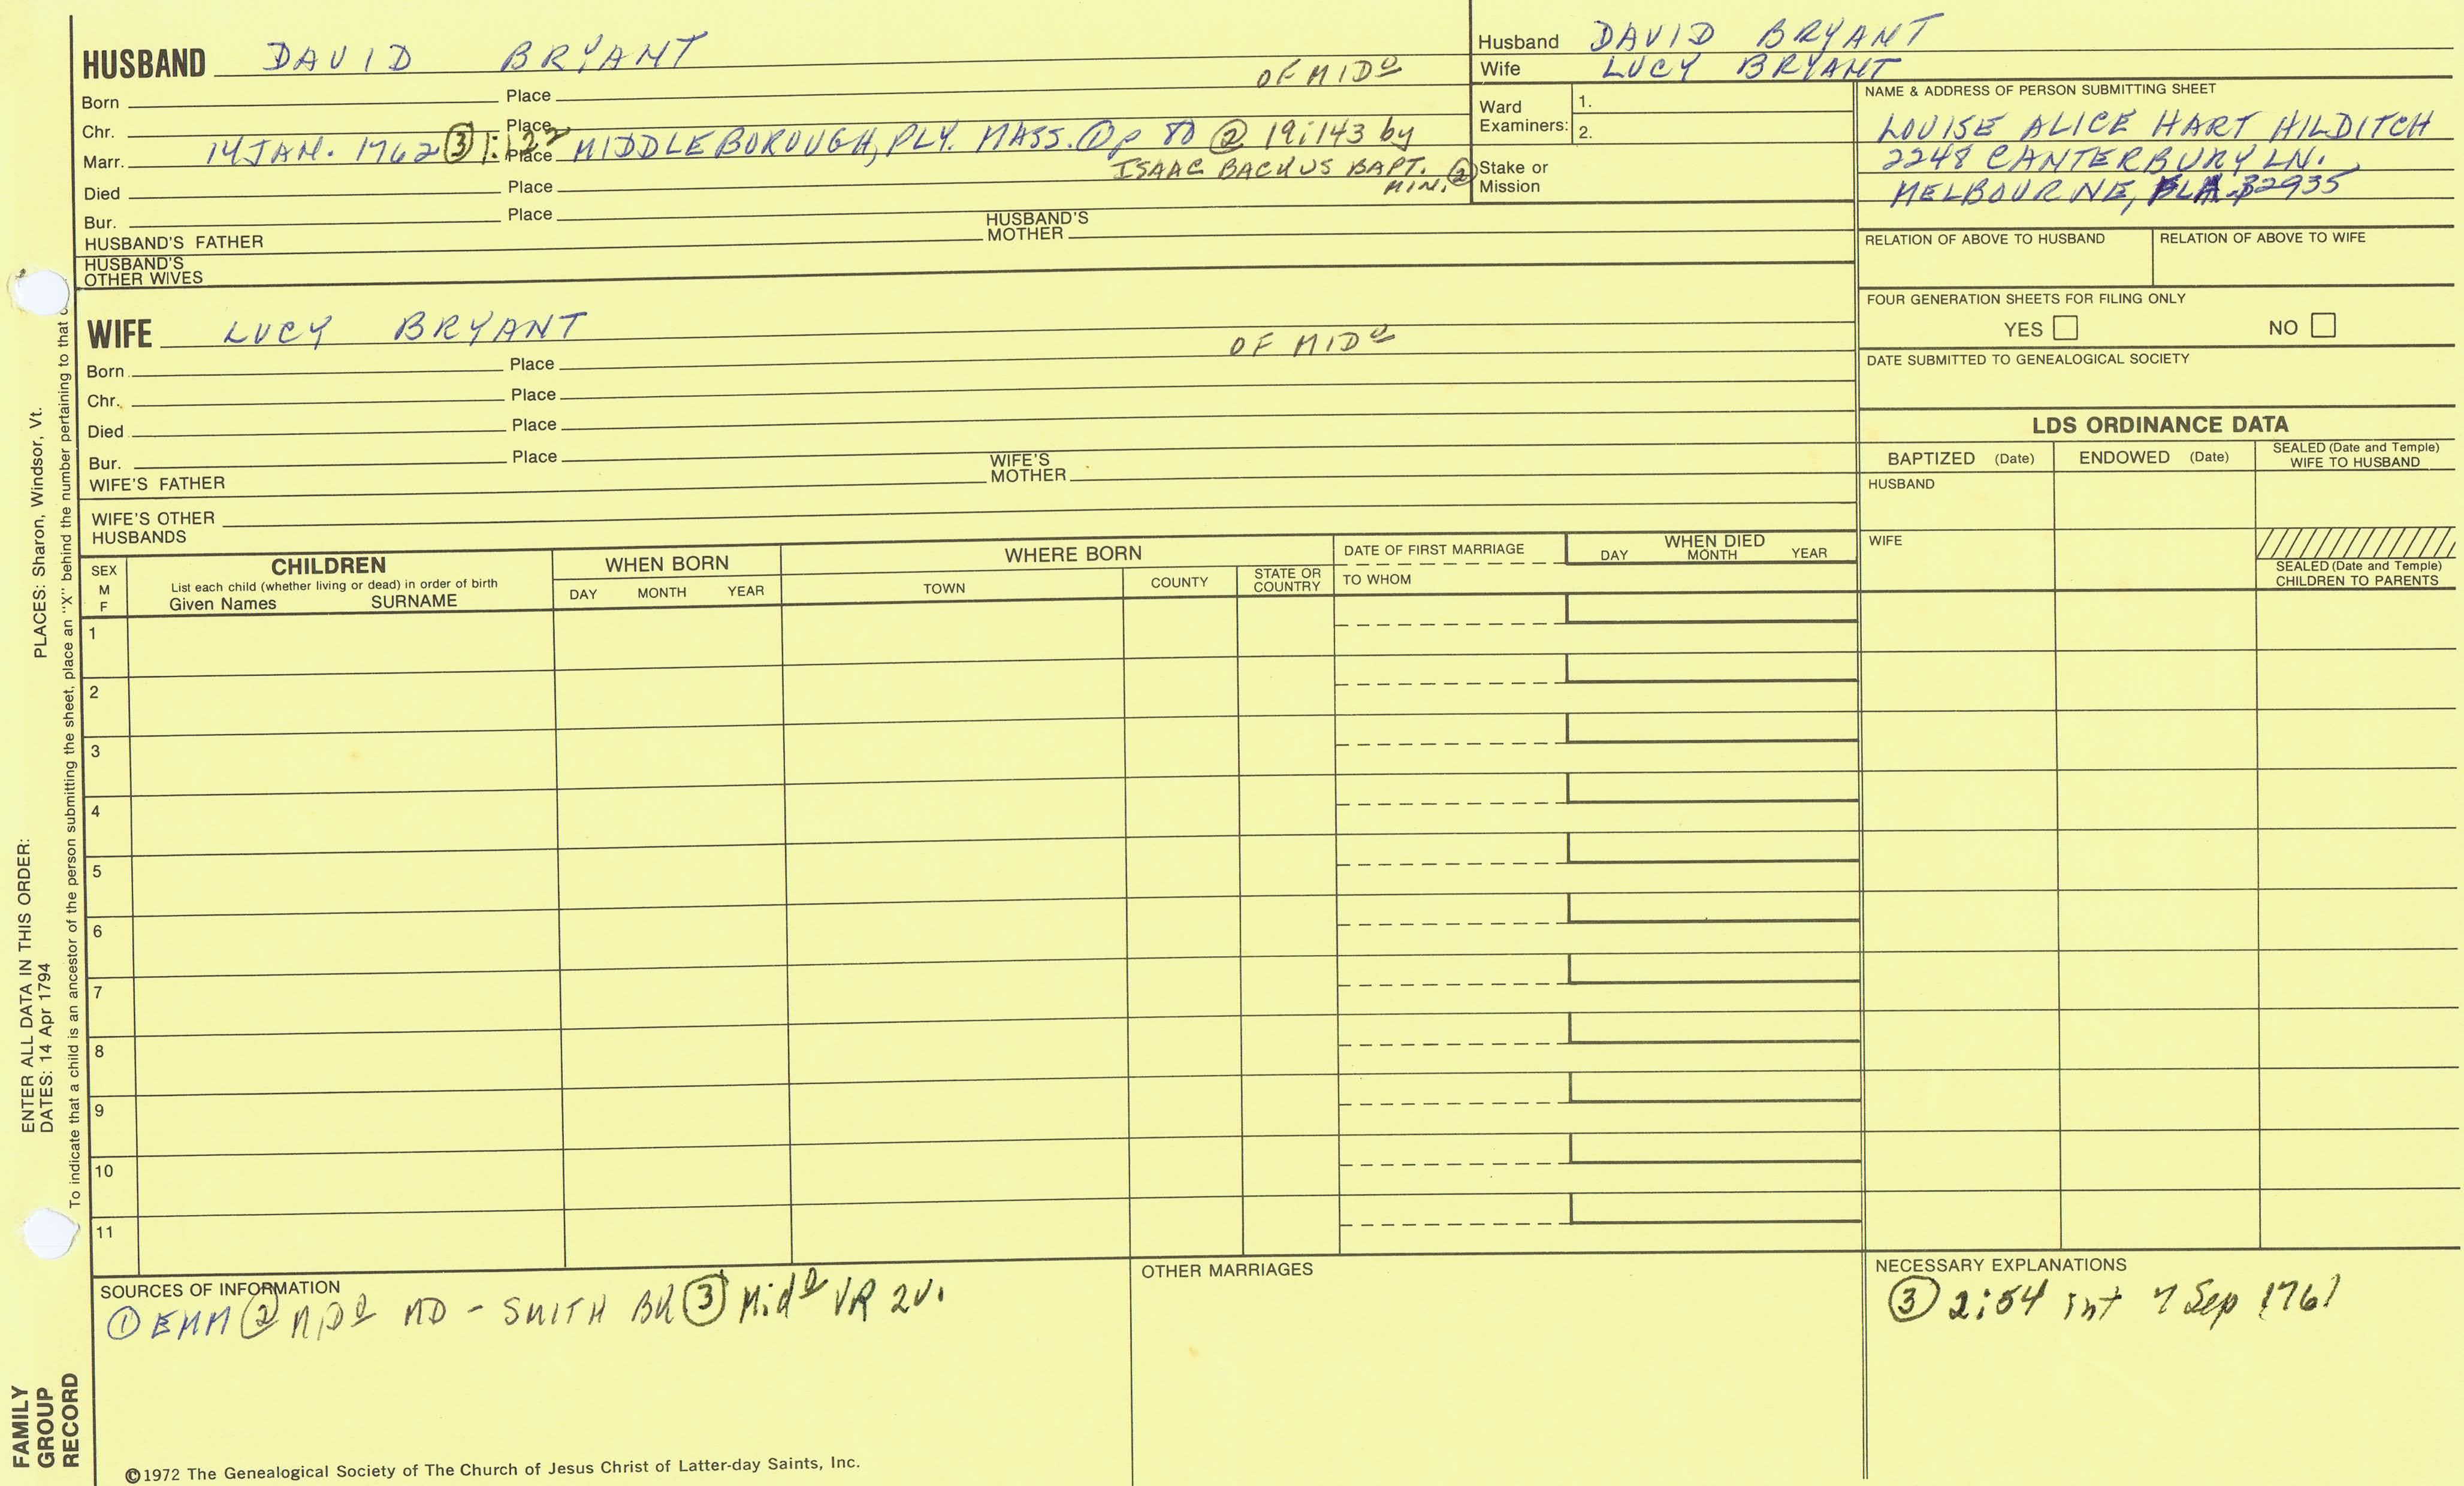 HUSBAND DAVID BRYANT OF MIDO
Born Place
Chr. Place
Marr. 14 JAN. 1762 ③ 1:122 Place MIDDLEBOROUGH, PLY. MASS. ① p 80 ② 19:143 by
ISAAC BACKUS BAPT.
MIN. ②
Died Place
Bur. Place
HUSBAND'S FATHER HUSBAND'S MOTHER
HUSBAND'S
OTHER WIVES
Husband DAVID BRYANT
Wife LUCY BRYANT
Ward
Examiners: 1.
2.
Stake or
Mission
NAME & ADDRESS OF PERSON SUBMITTING SHEET
LOUISE ALICE HART HILDITCH
2248 CANTERBURY LN.
MELBOURNE, FLA. 32935
RELATION OF ABOVE TO HUSBAND RELATION OF ABOVE TO WIFE
FOUR GENERATION SHEETS FOR FILING ONLY
YES NO
DATE SUBMITTED TO GENEALOGICAL SOCIETY
WIFE LUCY BRYANT OF MIDO
Born Place
Chr. Place
Died Place
Bur. Place
WIFE'S FATHER WIFE'S MOTHER
WIFE'S OTHER
HUSBANDS
LDS ORDINANCE DATA
BAPTIZED (Date) ENDOWED (Date) SEALED (Date and Temple)
WIFE TO HUSBAND
HUSBAND
WIFE
SEALED (Date and Temple)
CHILDREN TO PARENTS
SEX
M
F
CHILDREN
List each child (whether living or dead) in order of birth
Given Names SURNAME
WHEN BORN
DAY MONTH YEAR
WHERE BORN
TOWN COUNTY STATE OR
COUNTRY
DATE OF FIRST MARRIAGE
TO WHOM
WHEN DIED
DAY MONTH YEAR
1
2
3
4
5
6
7
8
9
10
11
SOURCES OF INFORMATION
① EMM ② MDO MD - SMITH BK ③ MidO VR 2v.
OTHER MARRIAGES
NECESSARY EXPLANATIONS
③ 2:54 int 7 Sep 1761
©1972 The Genealogical Society of The Church of Jesus Christ of Latter-day Saints, Inc.
ENTER ALL DATA IN THIS ORDER:
DATES: 14 Apr 1794 PLACES: Sharon, Windsor, Vt.
To indicate that a child is an ancestor of the person submitting the sheet, place an "X" behind the number pertaining to that
FAMILY
GROUP
RECORD